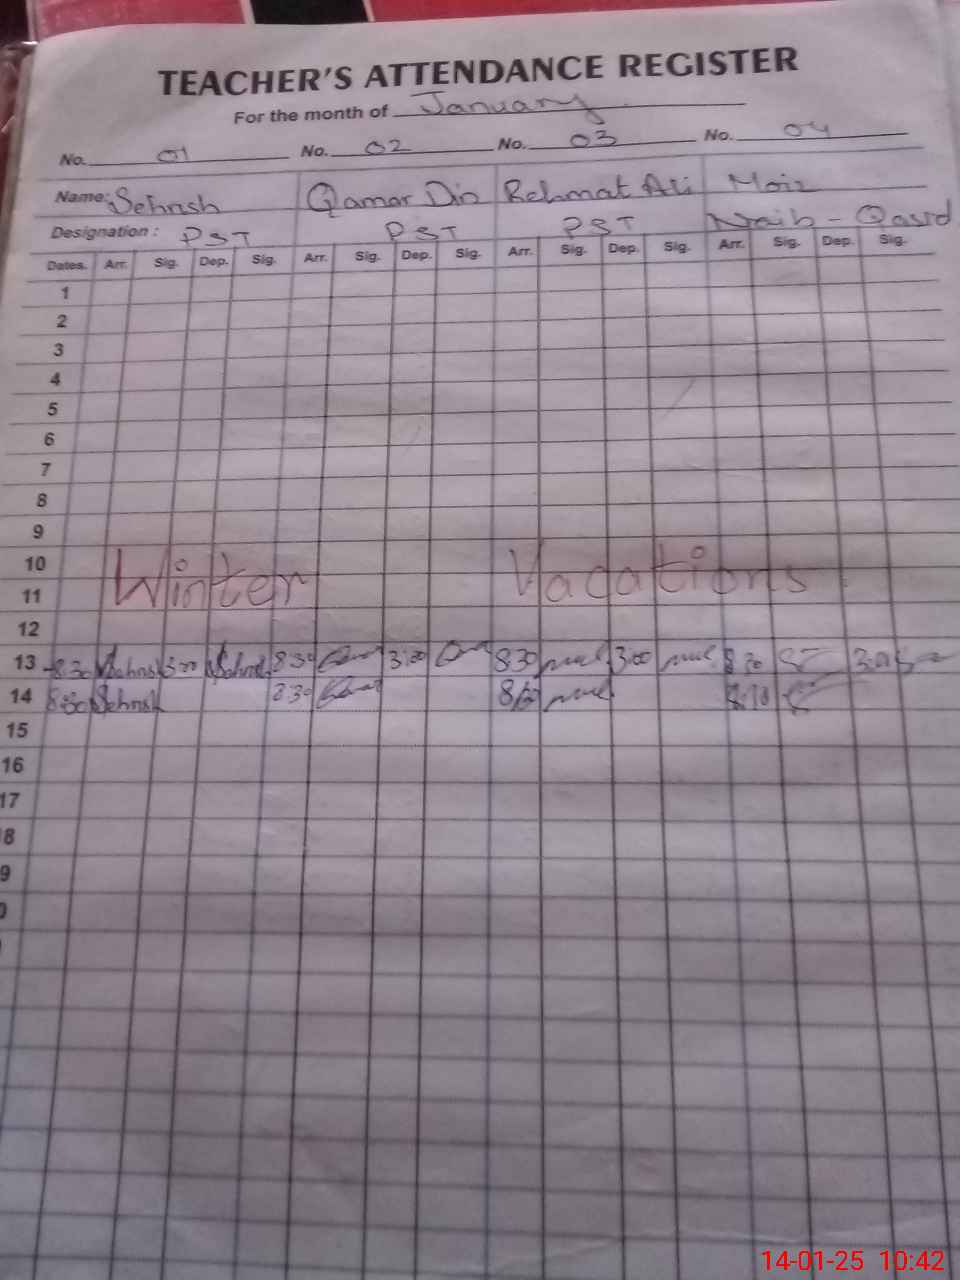 TEACHER'S ATTENDANCE REGISTER
For the month of January
No. 01 No. 02 No. 03 No. 04
Name: Sehrish Qamar Din Rehmat Ali Moiz
Designation: PST PST PST Naib-Qasid
Dates. Arr. Sig. Dep. Sig. Arr. Sig. Dep. Sig. Arr. Sig. Dep. Sig. Arr. Sig. Dep. Sig.
1
2
3
4
5
6
7
8
9
10
Winter Vacations
11
12
13 8:30 Sehrish 3:00 Sehrish 8:30 3:00 8:30 3:00 8:30
14 8:30 Sehrish 8:30
15
16
17
8
9
14-01-25 10:42